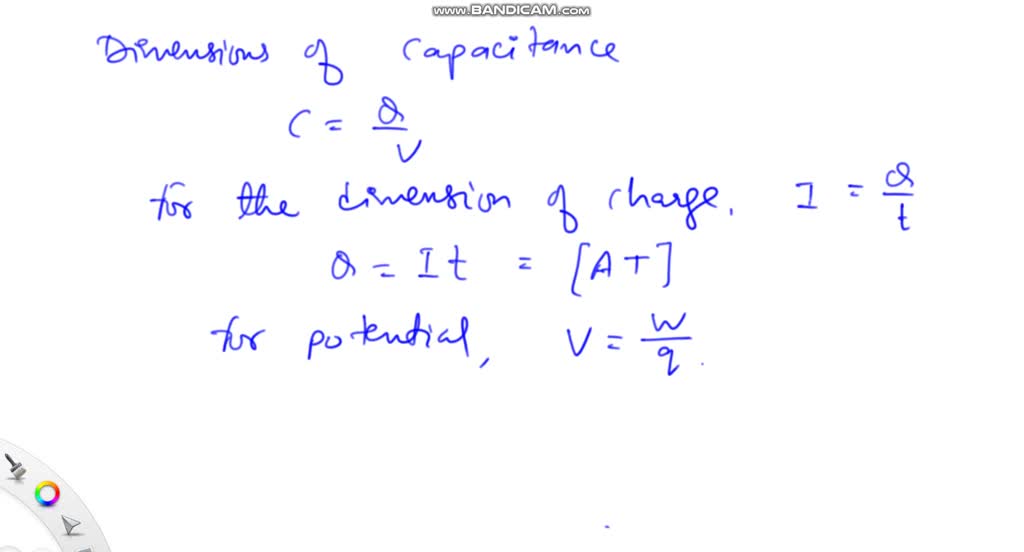 www.BANDICAM.com
Dimensions of Capacitance
C = Q/V
for the dimension of charge. I = Q/t
Q = It = [AT]
for potential, V = W/q.